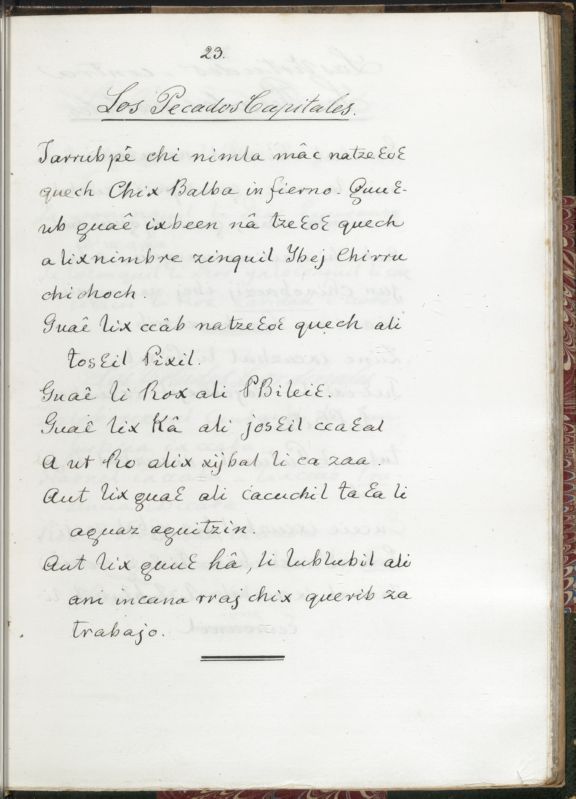 23.
Los Pecados Capitales.
Tarrubpê chi nimla mâc natzeƐoƐ
quech Chix Balba infierno. QuuƐ-
ub guaê ixbeen nâ tzeƐoƐ quech
alixnimbre zinquil Ybej Chirru
chi choch.
Guaê lix ccâb natzeƐoƐ quech ali
tosƐil Pixil.
Guaê li Rox ali PBileiƐ.
Guaê lix Kâ ali josƐil ccaƐal
A ut Ro alix xijbal li ca zaa.
Aut lix guaƐ ali cacuchil taƐa li
aguaz aguitzin.
Aut lix guuƐ hâ, li lublubil ali
ani incana rraj chix querib za
trabajo.